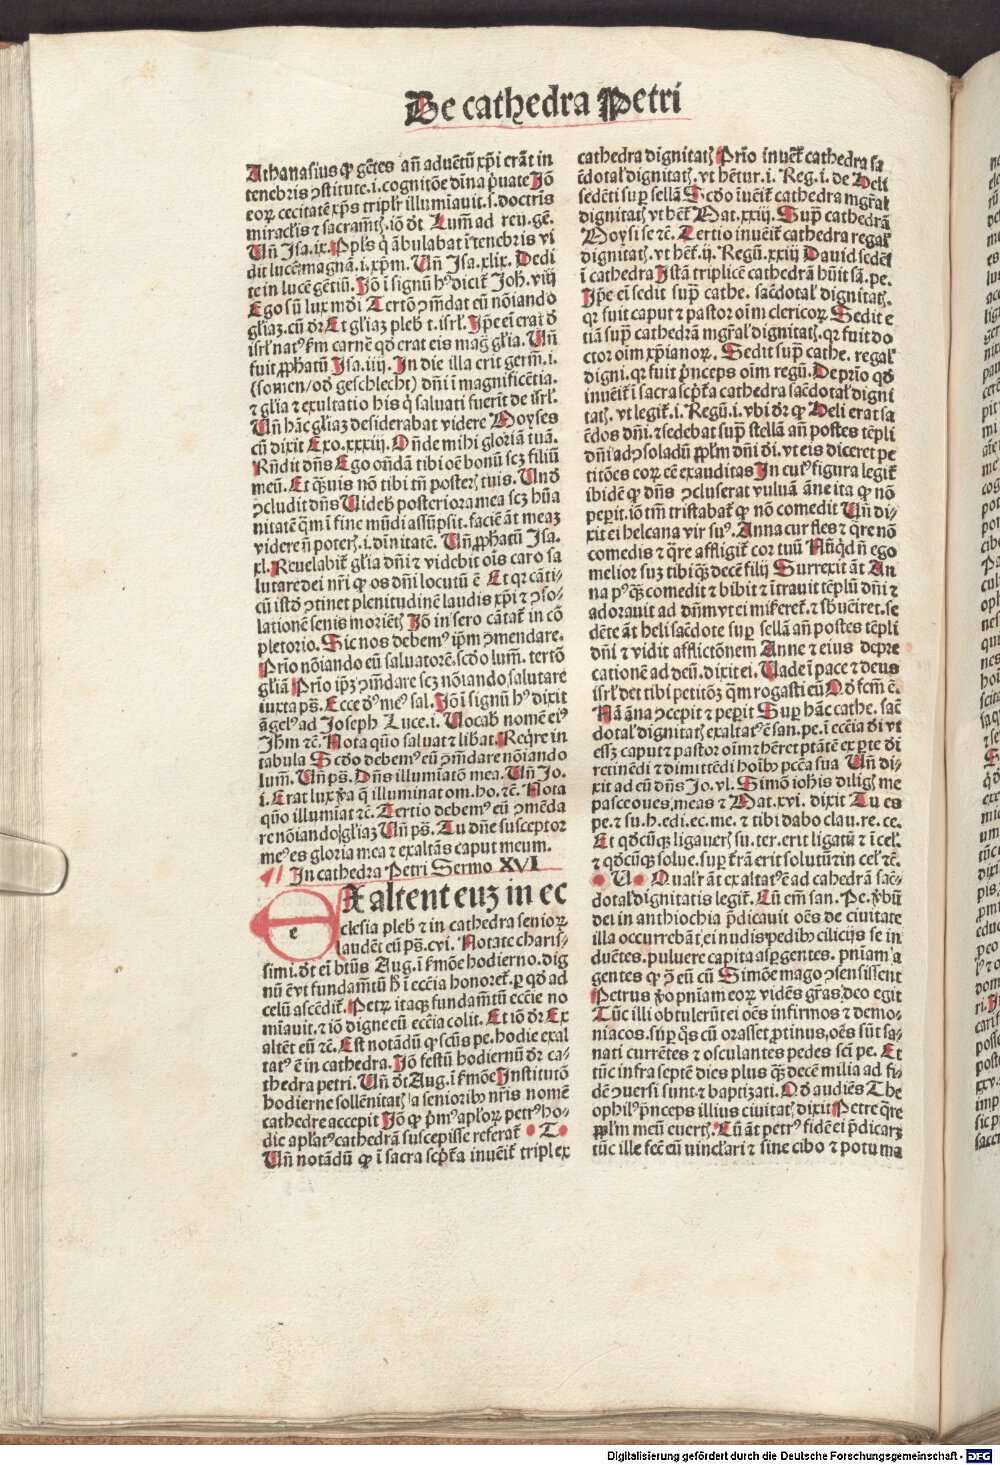 De cathedra Petri
Athanasius ꝙ gētes añ aduētū xp̄i erāt in
tenebris ꝯstitute .i. cognitōe dīna p̄uate Jō
eoꝝ cecitatē xp̄s triplr̄ illumīauit .s. doctrīs
miracl̄is ⁊ sacramt̄ꝭ .iō dt̄ Lum̄ ad reu. gē.
Un̄ Jsa .ix. Ppl̄s q̄ ābulabat ī tenebris vi
dit lucē magna .i. xp̄m. Un̄ Jsa .xlix. Dedi
te in lucē gētiū. Jō ī signū hꝰ dicit Joh. viij
Ego sū lux mūdi Tertō ꝯmēdat eū nōiando
gl̄iaꝫ. cū dr̄ Et gl̄iaꝫ pleb̄ t. isrl̄. Jpē eī erat d̄
isrl̄ natꝰ ẜm carnē qd̄ erat eis mag̃ gl̄ia. Un̄
fuit ꝓphatū Jsa .iiij. Jn die illa erit germ̄ .i.
(somen/od̄ geschlecht) dn̄i ī magnificētia.
⁊ gl̄ia ⁊ exultatio his q̄ saluati fuerīt de isrl̄.
Un̄ hāc gl̄iaꝫ desiderabat videre Moyses
cū dixit Exo. xxxiij. Onde mihi gloriā tuā.
Rn̄dit dn̄s Ego ondā tibi oē bonū scꝫ filiū
meū. Et qͣuis nō tibi tn̄ posterꝭ tuis. Und̄
ꝯcludit dn̄s Videb̄ posteriora mea scꝫ hūa
nitatē qͣm ī fine mūdi assūpsit. faciē āt meaꝫ
videre n̄ poterꝭ .i. dīnitatē. Un̄ ꝓphatū Jsa.
xl. Reuelabit̄ gl̄ia dn̄i ⁊ videbit oīs caro sa
lutare dei nr̄i ꝙ os dn̄i locutū ē Et qꝛ cāti-
cū istd̄ ꝯtinet plenitudinē laudis xp̄i ⁊ ꝯso-
lationē senis moriētꝭ Jō in sero cātat̄ in cō
pletorio. Sic nos debemꝰ ip̄m ꝯmendare.
Prīo nōiando eū saluatorē. scd̄o lum̄. tertō
gl̄iā Prīo ip̄ꝫ ꝯmēdare scꝫ nōiando salutare
iuxta ps̄. Ecce dꝰ meꝰ sal. Jō ī signū hꝰ dixit
āgelꝰ ad Joseph Luce .i. Vocab̄ nomē eiꝰ
Jhm̄ ⁊c̄. Nota quō saluat ⁊ libat. Req̄re in
tabula Scd̄o debemꝰ eū ꝯmēdare nōiando
lum̄. Un̄ ps̄. Dn̄s illumīatō mea. Un̄ Jo.
i. Erat lux ṽa q̄ illuminat om. ho. ⁊c̄. Nota
quō illumīat ⁊c̄. Tertio debemꝰ eū ꝯmēda
re nōiando gl̄iaꝫ Un̄ ps̄. Tu dn̄e susceptor
meꝰ es gloria mea ⁊ exaltās caput meum.
¶ Jn cathedra Petri Sermo XVI
Exaltent euꝫ in ec
clesia pleb̄ ⁊ in cathedra senioꝝ
laudēt eū ps̄. cvi. Notate charis-
simi. dt̄ eī bt̄us Aug. ī ẜmōe hodierno. dig
nū ē vt fundamt̄ū h̄ ī eccīa honoret̄. per qd̄ ad
celū ascēdit̄. Petꝝ itaqꝫ fundamt̄ū eccīe no
mīauit. ⁊ iō digne eū eccīa colit. Et iō dr̄ Ex
altēt eū ⁊c̄. Est notādū ꝙ scūs pe. hodie exal
tatꝰ ē in cathedra. Jō festū hodiernū dr̄ ca-
thedra petri. Un̄ dt̄ Aug. ī ẜmōe Jnstitutō
hodierne sollēnitatꝭ a seniorib̄ nr̄is nomē
cathedre accepit Jō ꝙ p̄mꝰ apl̄oꝝ petrꝰ ho-
die apl̄atꝰ cathedrā suscepisse referat̄ • T •
Un̄ notādū ꝙ ī sacra scp̄t̄a inuēit̄ triplex
cathedra dīgnitatꝭ Prīo inuēit̄ cathedra sa
c̄dotal̄ dignitatꝭ. vt hētur .i. Reg. i. de Heli
sedēti suꝑ sellā Scd̄o īuēit̄ cathedra mgr̄al̄
dignitatꝭ vt het̄ Mat. xxiij. Suꝑ cathedrā
Moysi se ⁊c̄. Tertio inuēit̄ cathedra regal̄
dignitatꝭ. vt het̄ .ij. Regū. xxiij Dauid sedēs
ī cathedra Jstā triplicē cathedrā hūit sā. pe.
Jpē eī sedit suꝑ cathe. sac̄dotal̄ dignitatꝭ.
qꝛ fuit caput ⁊ pastor oīm clericoꝝ. Sedit e
tiā suꝑ cathedrā mgr̄al̄ dignitatꝭ. qꝛ fuit do
ctor oīm xp̄ianoꝝ. Sedit suꝑ cathe. regal̄
digni. qꝛ fuit p̄nceps oīm regū. De prīo qd̄
inuēit̄ ī sacra scp̄t̄a cathedra sac̄dotal̄ digni
tatꝭ. vt legit̄ .i. Regū. i. vbi dr̄ ꝙ Heli erat sa
c̄dos dn̄i. ⁊ sedebat suꝑ stellā añ postes tēpli
dn̄i ad ꝯsoladū ppl̄m dn̄i dī. vt eis diceret pe
titōes eoꝝ eē exauditas Jn cuiꝰ figura legit̄
ibidē ꝙ dn̄s ꝯcluserat vuluā āne ita ꝙ nō
peꝑit. iō tm̄ tristabat̄ ꝙ nō comedit Un̄ di-
xit ei helcana vir suꝰ. Anna cur fles ⁊ qͣre nō
comedis ⁊ qͣre affligit̄ cor tuū Nūqͥd n̄ ego
melior suꝫ tibi qͣꝫ decē filij Surrexit āt An
na pꝰqͣꝫ comedit ⁊ bibit ⁊ ītrauit tēplū dn̄i ⁊
adorauit ad dn̄m vt ei miẜeret̄. ⁊ sb̄uēiret. se
dēte āt heli sac̄dote suꝑ sellā añ postes tēpli
dn̄i ⁊ vidit afflictōnem Anne ⁊ eius depre
cationē ad deū. dixit ei. Vade ī pace ⁊ deus
isrl̄ det tibi petitōꝫ qͣm rogasti eū Qd̄ fcm̄ ē.
Nā āna ꝯcepit ⁊ peꝑit Suꝑ hāc cathe. sac̄
dotal̄ dignitatꝭ exaltatꝰ ē san. pe. ī eccīa dī vt
esꝫ caput ⁊ pastor oīm ⁊ hēret ptātē ex ꝑte dī
retinēdi ⁊ dimittēdi hoīb̄ pc̄ca sua Un̄ di-
xit ad eū dn̄s Jo. vl. Simō iohis diligꝭ me
pasce oues meas ⁊ Mat. xvi. dixit Tu es
pe. ⁊ su. h. edi. ec. me. ⁊ tibi dabo clau. re. ce.
Et qd̄cūqꝫ ligauerꝭ su. ter. erit ligatū ⁊ ī cel̄.
⁊ qd̄cūqꝫ solue. suꝑ t̄rā erit solutū ⁊ in cel̄ ⁊c̄.
• U • Qualr̄ āt exaltatꝰ ē ad cahedrā sac̄-
dotal̄ dignitatis legit̄. Cū em̄ san. Pe. ṽbū
dei in anthiochia p̄dicauit oēs de ciuitate
illa occurrebāt ei nudis pedib̄ cilicijs se in
duētes. puluere capita aspergentes. pn̄iam a
gentes ꝙ ꝯ̄ eū cū Simōe mago ꝯsensissent
Petrus ṽo pn̄iam eoꝝ vidēs gr̄as deo egit
Tūc illi obtulerūt ei oēs infirmos ⁊ demo-
niacos. suꝑ qͦs cū orasset ꝓtinus, oēs sūt sa-
nati currētes ⁊ osculantes pedes scī pe. Et
tūc infra septē dies plus qͣꝫ decē milia ad fi-
dē ꝯuersi sunt ⁊ baptizati. Qd̄ audiēs The
ophilꝰ p̄nceps illius ciuitatꝭ dixit Petre qͣre
ppl̄m meū euertꝭ. Cū āt petrꝰ fidē ei p̄dicaꝝ
tūc ille fec̄ eū vincl̄ari ⁊ sine cibo ⁊ potu ma
Digitalisierung gefördert durch die Deutsche Forschungsgemeinschaft - DFG